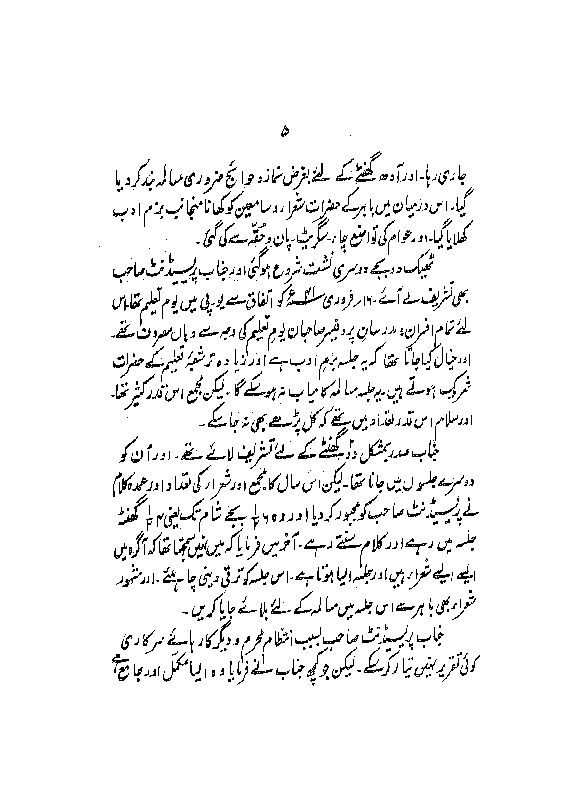 ۵
جاری رہا۔ اور آدھ گھنٹے کے لئے بغرض نماز و حوائج ضروری مسالمہ بند کر دیا
گیا۔ اس درمیان میں باہر کے حضرات شعراء و سامعین کو کھانا منجانب بزم ادب
کھلایا گیا۔ اور عوام کی تواضع چاء۔ سگریٹ۔ پان و حقہ سے کی گئی۔
ٹھیک دو بجے دوسری نشست شروع ہو گئی اور جناب پریسیڈنٹ صاحب
بھی تشریف لے آئے۔ ۱۶ فروری کو اتفاق سے یو پی میں یوم تعلیم تھا۔ اس
لئے تمام افسران و مدرسان پروفیسر صاحبان یوم تعلیم کی وجہ سے وہاں مصروف تھے۔
اور خیال کیا جاتا تھا کہ یہ جلسہ بزم ادب ہے اور زیادہ تر شعبۂ تعلیم کے حضرات
شریک ہوتے ہیں۔ یہ جلسہ مسالمہ کامیاب نہ ہو سکے گا۔ لیکن مجمع اس قدر کثیر تھا۔
اور سلام اس قدر تعداد میں تھے کہ کل پڑھے بھی نہ جا سکے۔
جناب صدر بمشکل دو گھنٹے کے لئے تشریف لائے تھے۔ اور ان کو
دوسرے جلسوں میں جانا تھا۔ لیکن اس سال کا مجمع اور شعراء کی تعداد اور عمدہ کلام
نے پریسیڈنٹ صاحب کو مجبور کر دیا اور وہ ۶½ بجے شام تک یعنی ۴½ گھنٹہ
جلسہ میں رہے اور کلام سنتے رہے۔ آخر میں فرمایا کہ میں نہیں سمجھتا تھا کہ آگرہ میں
ایسے ایسے شعراء ہیں اور جلسہ ایسا ہوتا ہے۔ اس جلسہ کو ترقی دینی چاہئے۔ اور مشہور
شعراء بھی باہر سے اس جلسہ میں مسالمہ کے لئے بلائے جایا کریں۔
جناب پریسیڈنٹ صاحب بسبب انتظام محرم و دیگر کار ہائے سرکاری
کوئی تقریر نہیں تیار کر سکے۔ لیکن جو کچھ جناب نے فرمایا وہ ایسا مکمل اور جامع ہے